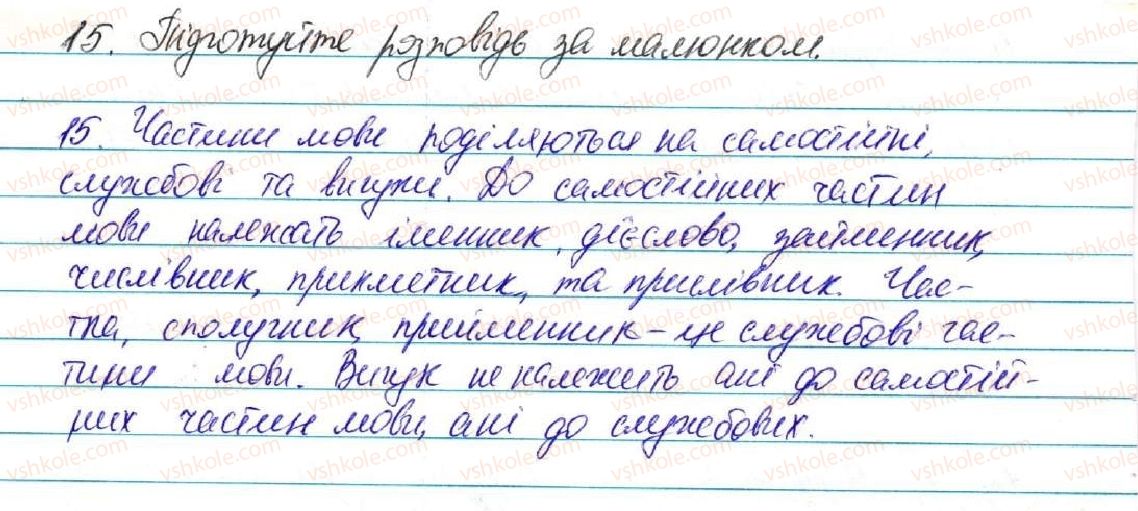 15. Підготуйте розповідь за малюнком.
15. Частини мови поділяються на самостійні,
службові та вигуки. До самостійних частин
мови належать іменник, дієслово, займенник,
числівник, прикметник, та прислівник. Час-
тка, сполучник, прийменник – це службові час-
тини мови. Вигук не належить ані до самостій-
них частин мови, ані до службових.
vshkole.com